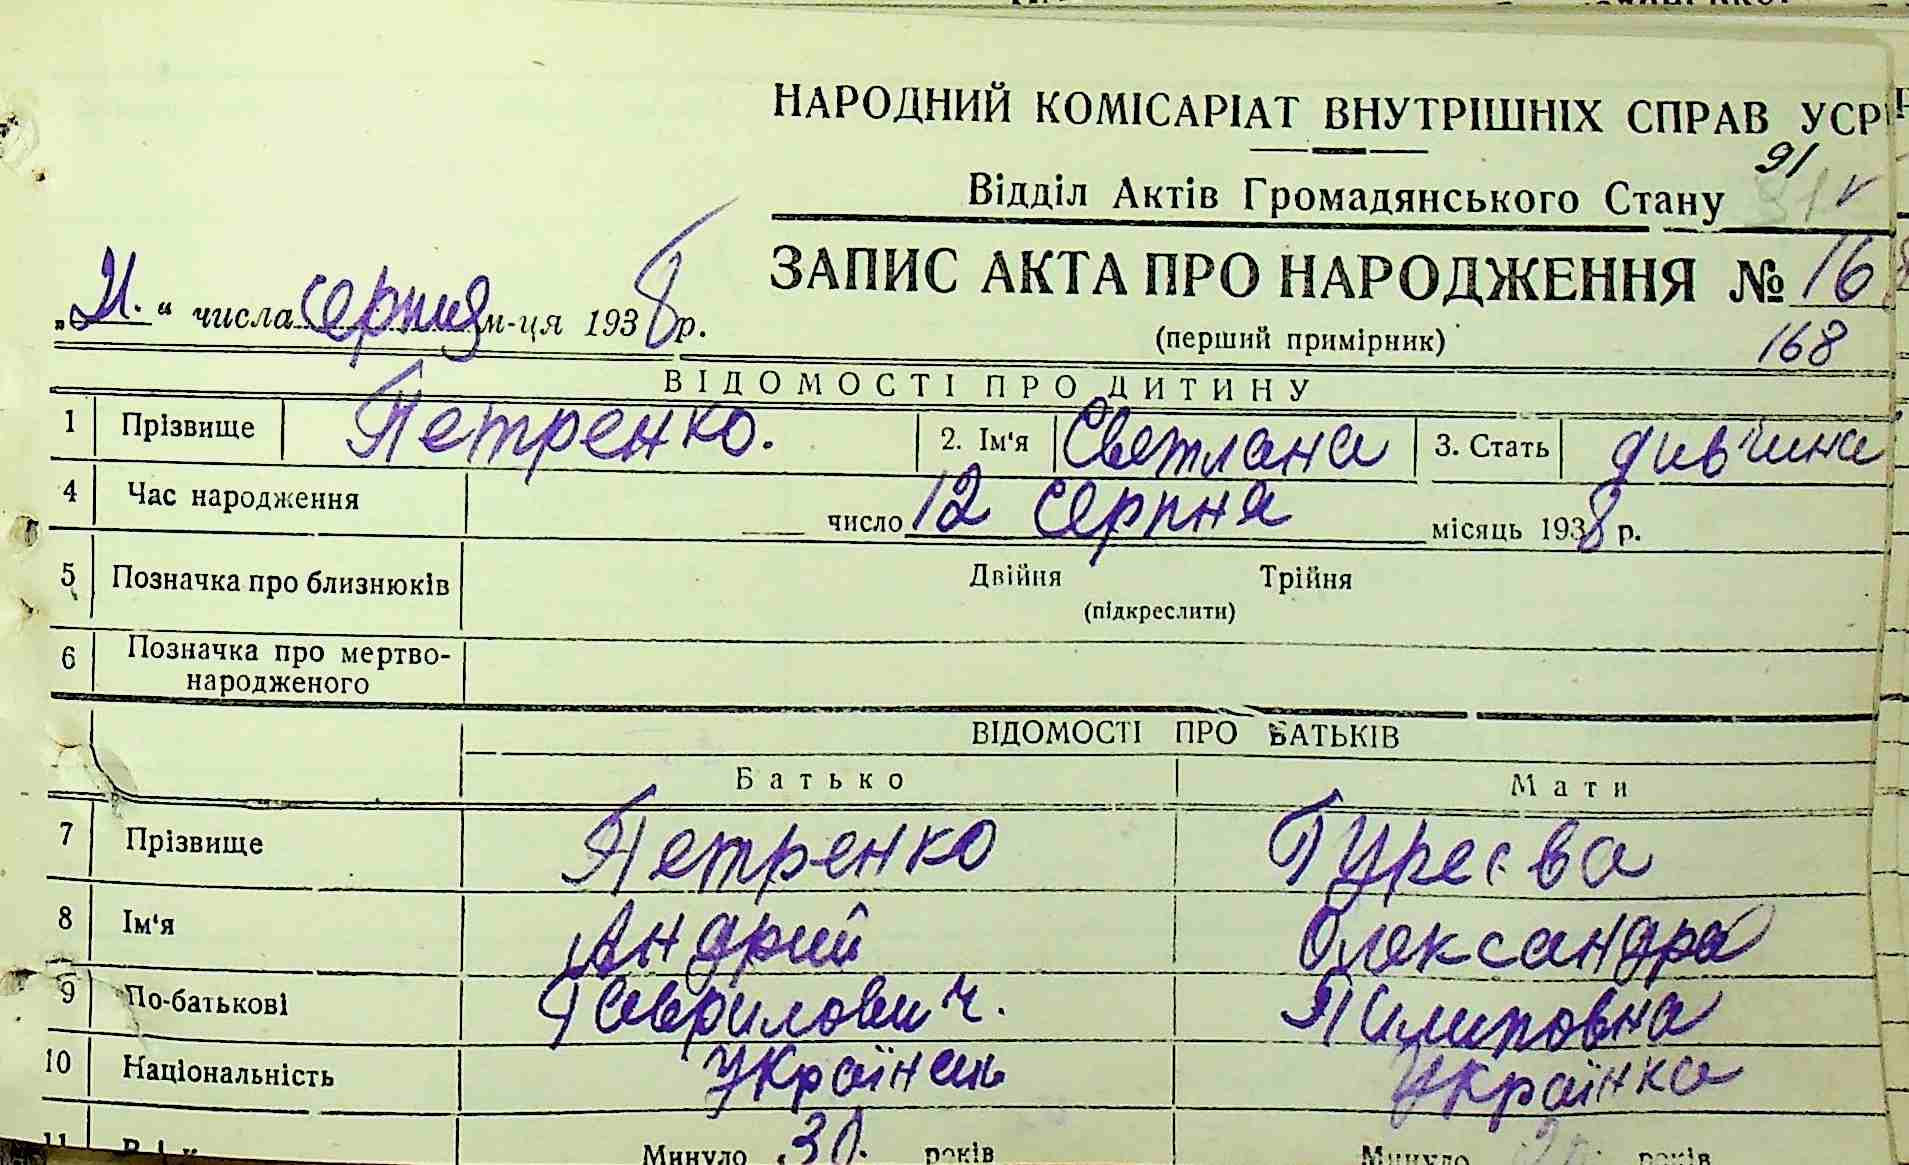 НАРОДНИЙ КОМІСАРІАТ ВНУТРІШНІХ СПРАВ УСР
91
Відділ Актів Громадянського Стану
ЗАПИС АКТА ПРО НАРОДЖЕННЯ № 168
„21.“ числа серпня м-ця 1938 р.
(перший примірник)
168
ВІДОМОСТІ ПРО ДИТИНУ
1 Прізвище Петренко. 2. Ім'я Светлана 3. Стать дивчина
4 Час народження число 12 серпня місяць 1938 р.
5 Позначка про близнюків Двійня Трійня
(підкреслити)
6 Позначка про мертво-
народженого
ВІДОМОСТІ ПРО БАТЬКІВ
Батько Мати
7 Прізвище Петренко Гуреєва
8 Ім'я Андрий Олександра
9 По-батькові Гаврилович. Пилиповна
10 Національність Українець Українка
11 Вік Минуло 30. років Минуло років